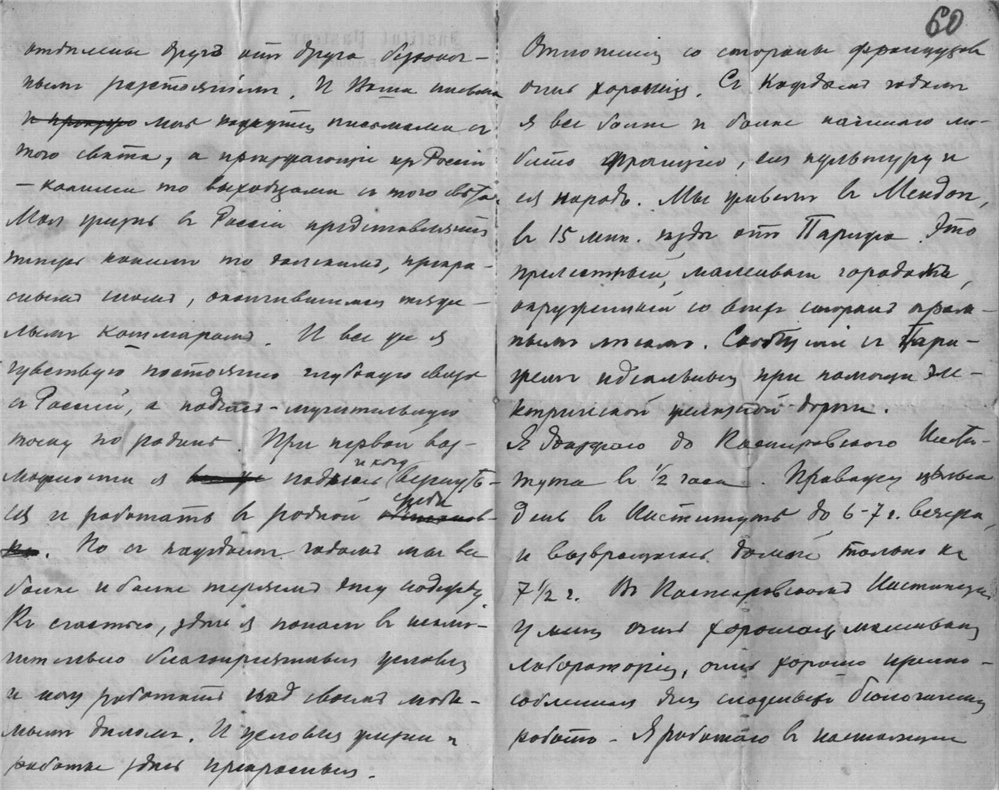 60
отдѣлены другъ отъ друга безконеч-
нымъ разстояніемъ. И Ваши письма
и кажутся мнѣ письмами съ
того свѣта, а пріѣзжающіе из Россіи
— какими то выходцами съ того свѣта.
Моя жизнь въ Россіи представляется
теперь какимъ то далекимъ, прекра-
снымъ сномъ, окончившимся тяже-
лымъ кошмаромъ. И все же я
чувствую постоянно глубокую связь
съ Россіей, а подчасъ – мучительную
тоску по родинѣ. При первой воз-
можности я хочу вернуть-
ся и работать въ родной средѣ
. Но съ каждымъ годомъ мы все
болѣе и болѣе теряемъ эту надежду
Къ счастью, здѣсь я попалъ въ исклю-
чительно благопріятныя условія
и могу работать над своимъ люби-
мымъ дѣломъ. И условія жизни и
работы здѣсь прекрасныя.
Отношенія со стороны французовъ
очень хорошія. Съ каждымъ годомъ
я все болѣе и болѣе начинаю лю-
бить Францію, ея культуру и
ея народъ. Мы живемъ въ Медон,
въ 15 мин. ѣзды отъ Парижа. Это
прелестный, маленькій городокъ,
окруженный со всѣхъ сторонъ
лѣсомъ. Сообщенія съ Пари-
жемъ идеальныя при помощи эле-
ктрической желѣзной дороги.
Я доѣзжаю до Пастеровского Инсти-
тута въ 1/2 часа. Провожу цѣлый
день въ Институтѣ до 6-7 ч. вечера,
и возвращаюсь домой только къ
7 1/2 ч. Въ Пастеровскомъ Институтѣ
у меня очень хорошая маленькая
лабораторія, очень хорошо приспо-
собленная для біологич.
работъ – Я работаю въ настоящее